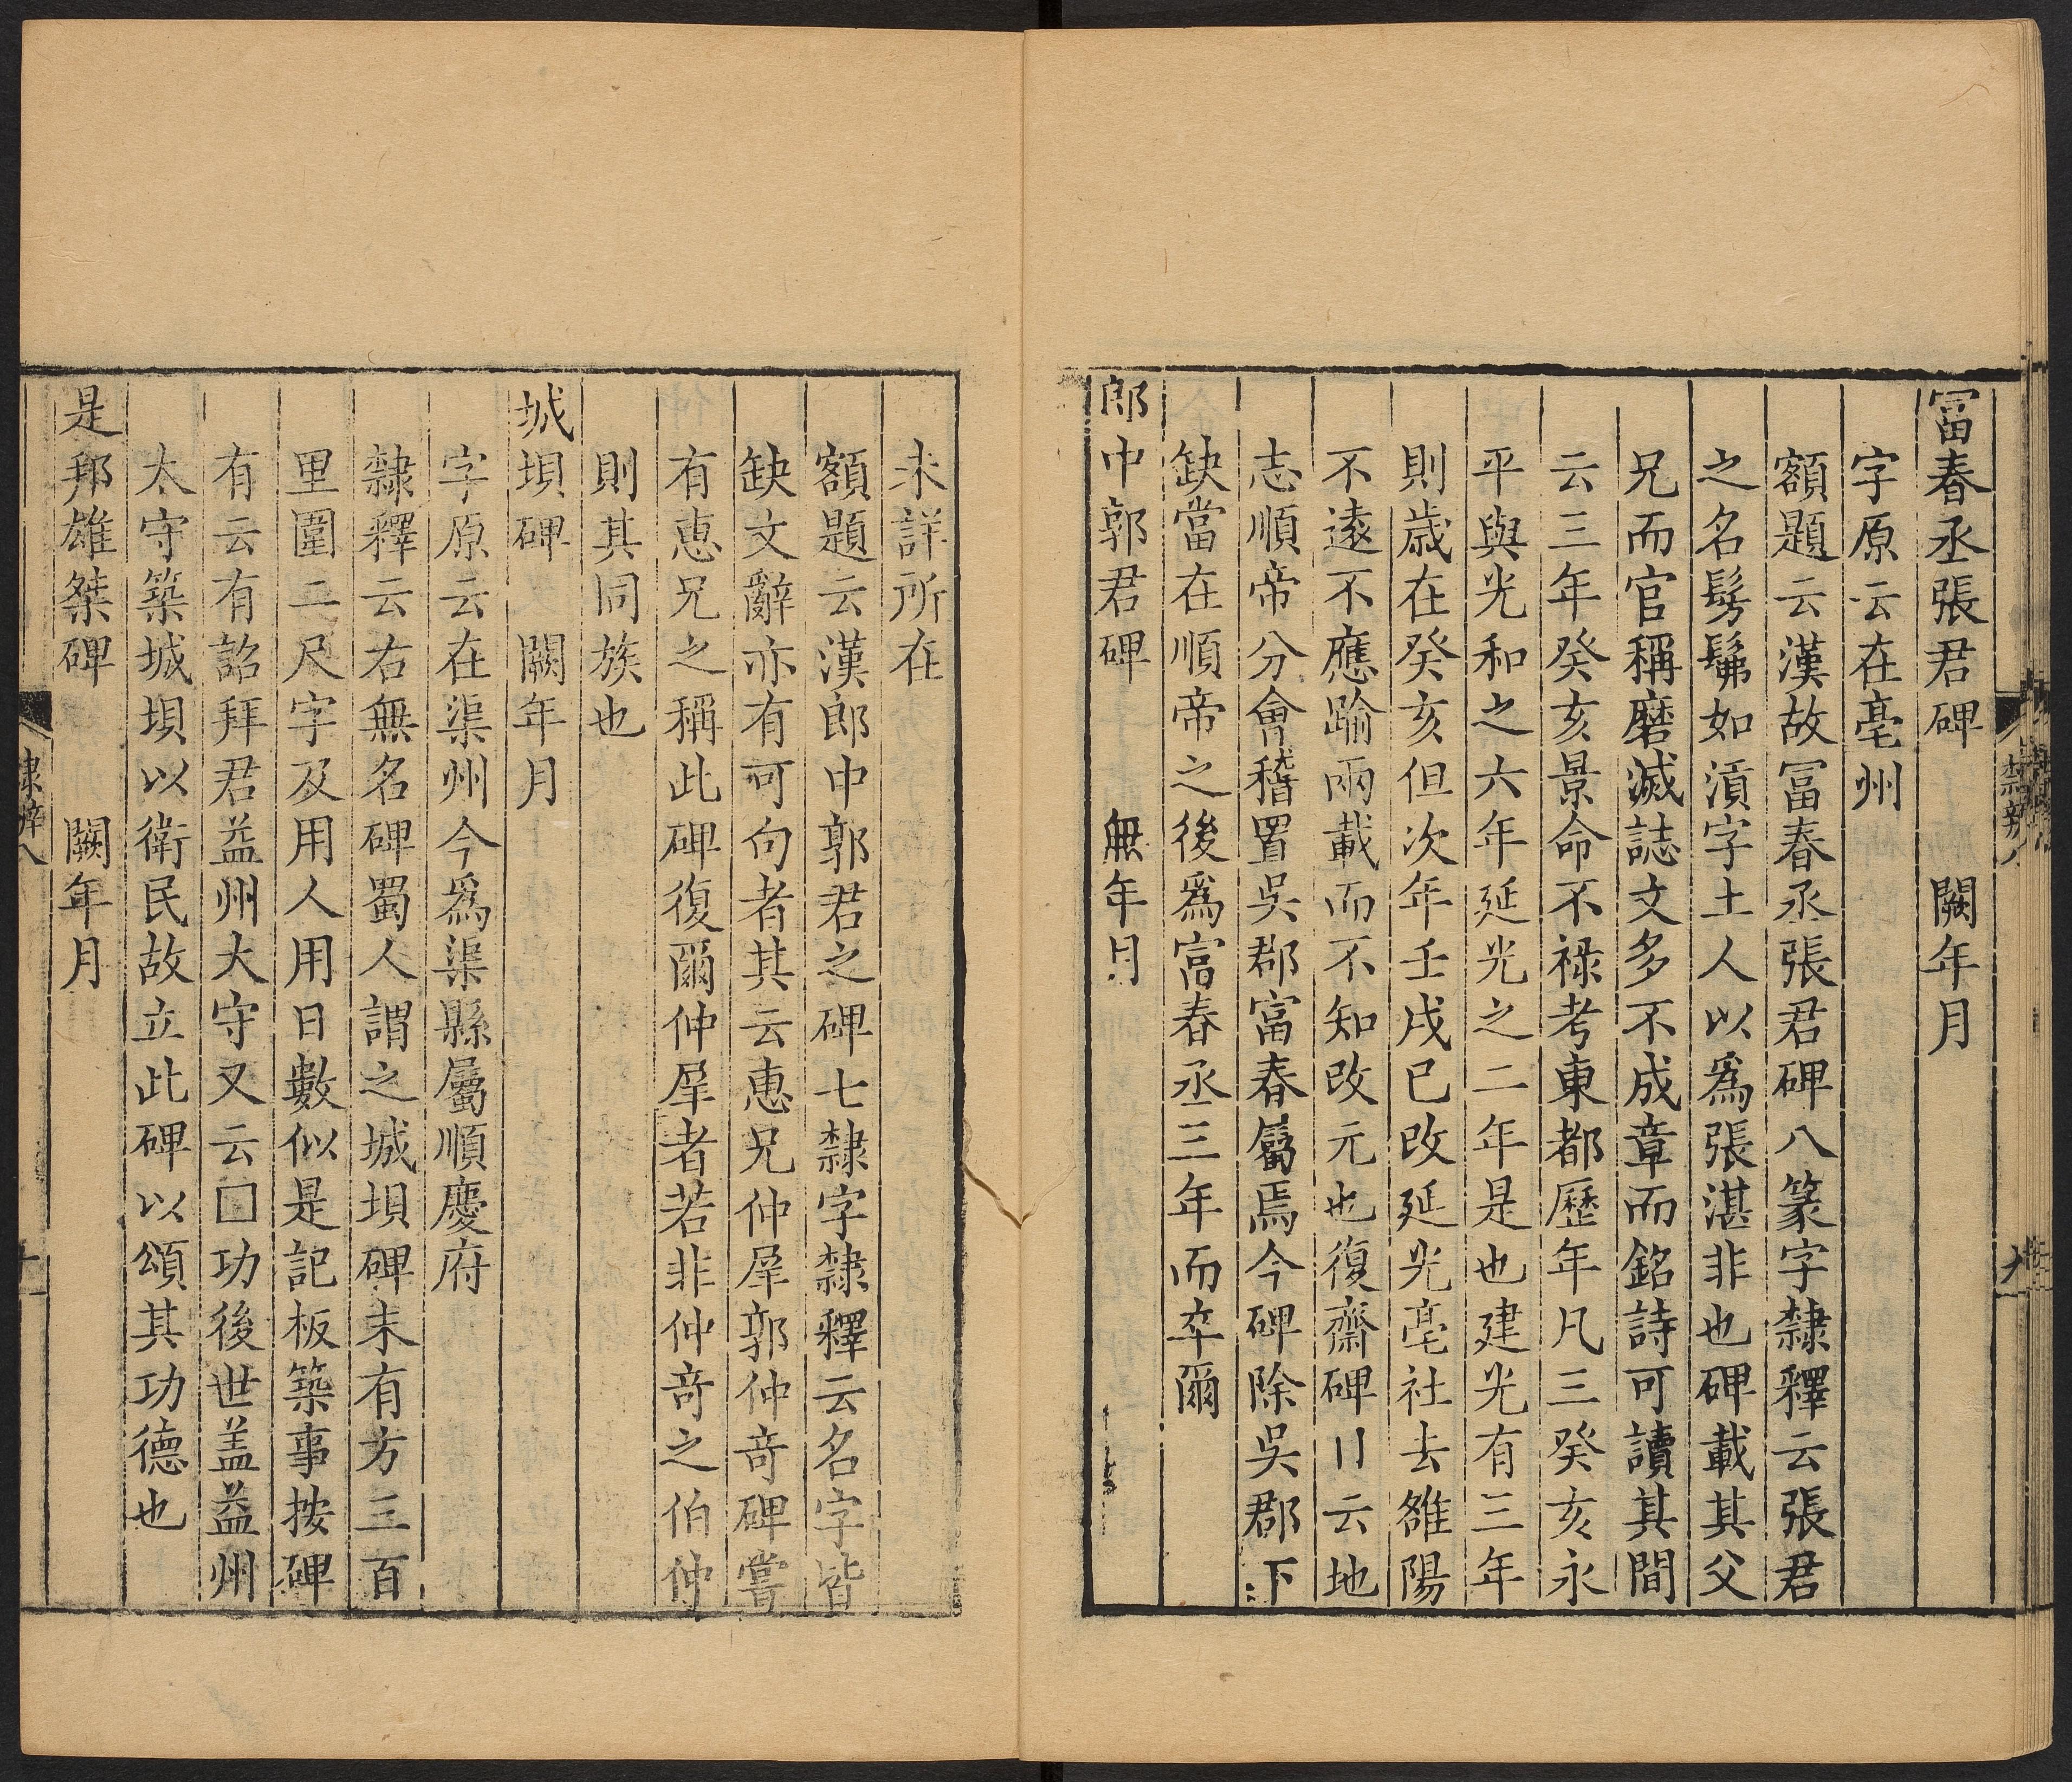 冨春丞張君碑 闕年月
字原云在亳州
額題云漢故冨春丞張君碑八篆字隸釋云張君
之名髣髴如湏字土人以爲張湛非也碑載其父
兄而官稱磨滅誌文多不成章而銘詩可讀其間
云三年癸亥景命不禄考東都歷年凡三癸亥永
平與光和之六年延光之二年是也建光有三年
則歳在癸亥但次年壬戌已改延光亳社去雒陽
不遠不應踰兩載而不知改元也復齋碑目云地
志順帝分會稽置吳郡富春屬焉今碑除吳郡下
缺當在順帝之後爲富春丞三年而卒爾
郎中郭君碑 無年月
未詳所在
額題云漢郎中郭君之碑七隸字隸釋云名字皆
缺文辭亦有可句者其云惠兄仲犀郭仲奇碑嘗
有惠兄之稱此碑復爾仲犀者若非仲奇之伯仲
則其同族也
城垻碑 闕年月
字原云在渠州今爲渠縣屬順慶府
隸釋云右無名碑蜀人謂之城垻碑末有方三百
里圍二尺字及用人用日數似是記板築事按碑
有云有詔拜君益州大守又云□功後世盖益州
太守築城垻以衛民故立此碑以頌其功德也
是邦雄桀碑 闕年月
隸辨八